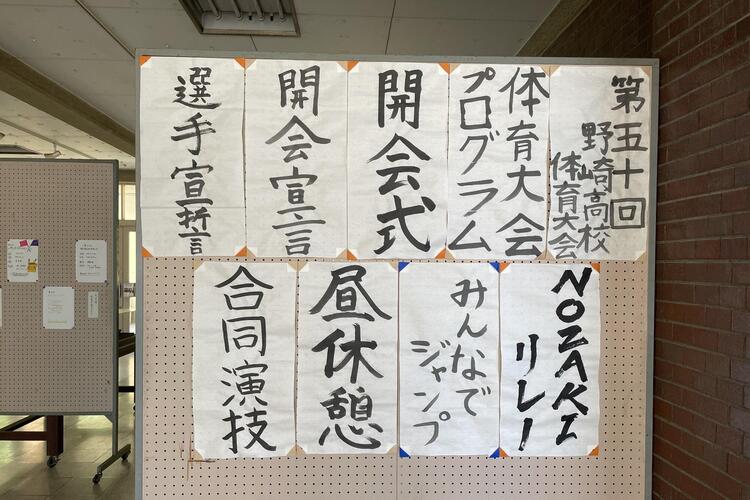 第五十回
野崎高校
体育大会
体育大会
プログラム
開会式
開会宣言
選手宣誓
NOZAKI
リレー
みんなで
ジャンプ
昼休憩
合同演技